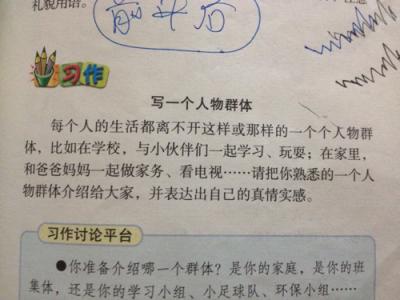 礼貌用语。
习作
写一个人物群体
每个人的生活都离不开这样或那样的一个个人物群
体，比如在学校，与小伙伴们一起学习、玩耍；在家里，
和爸爸妈妈一起做家务、看电视……请把你熟悉的一个人
物群体介绍给大家，并表达出自己的真情实感。
习作讨论平台
●你准备介绍哪一个群体？是你的家庭，是你的班
集体，还是你的学习小组、小足球队、环保小组……